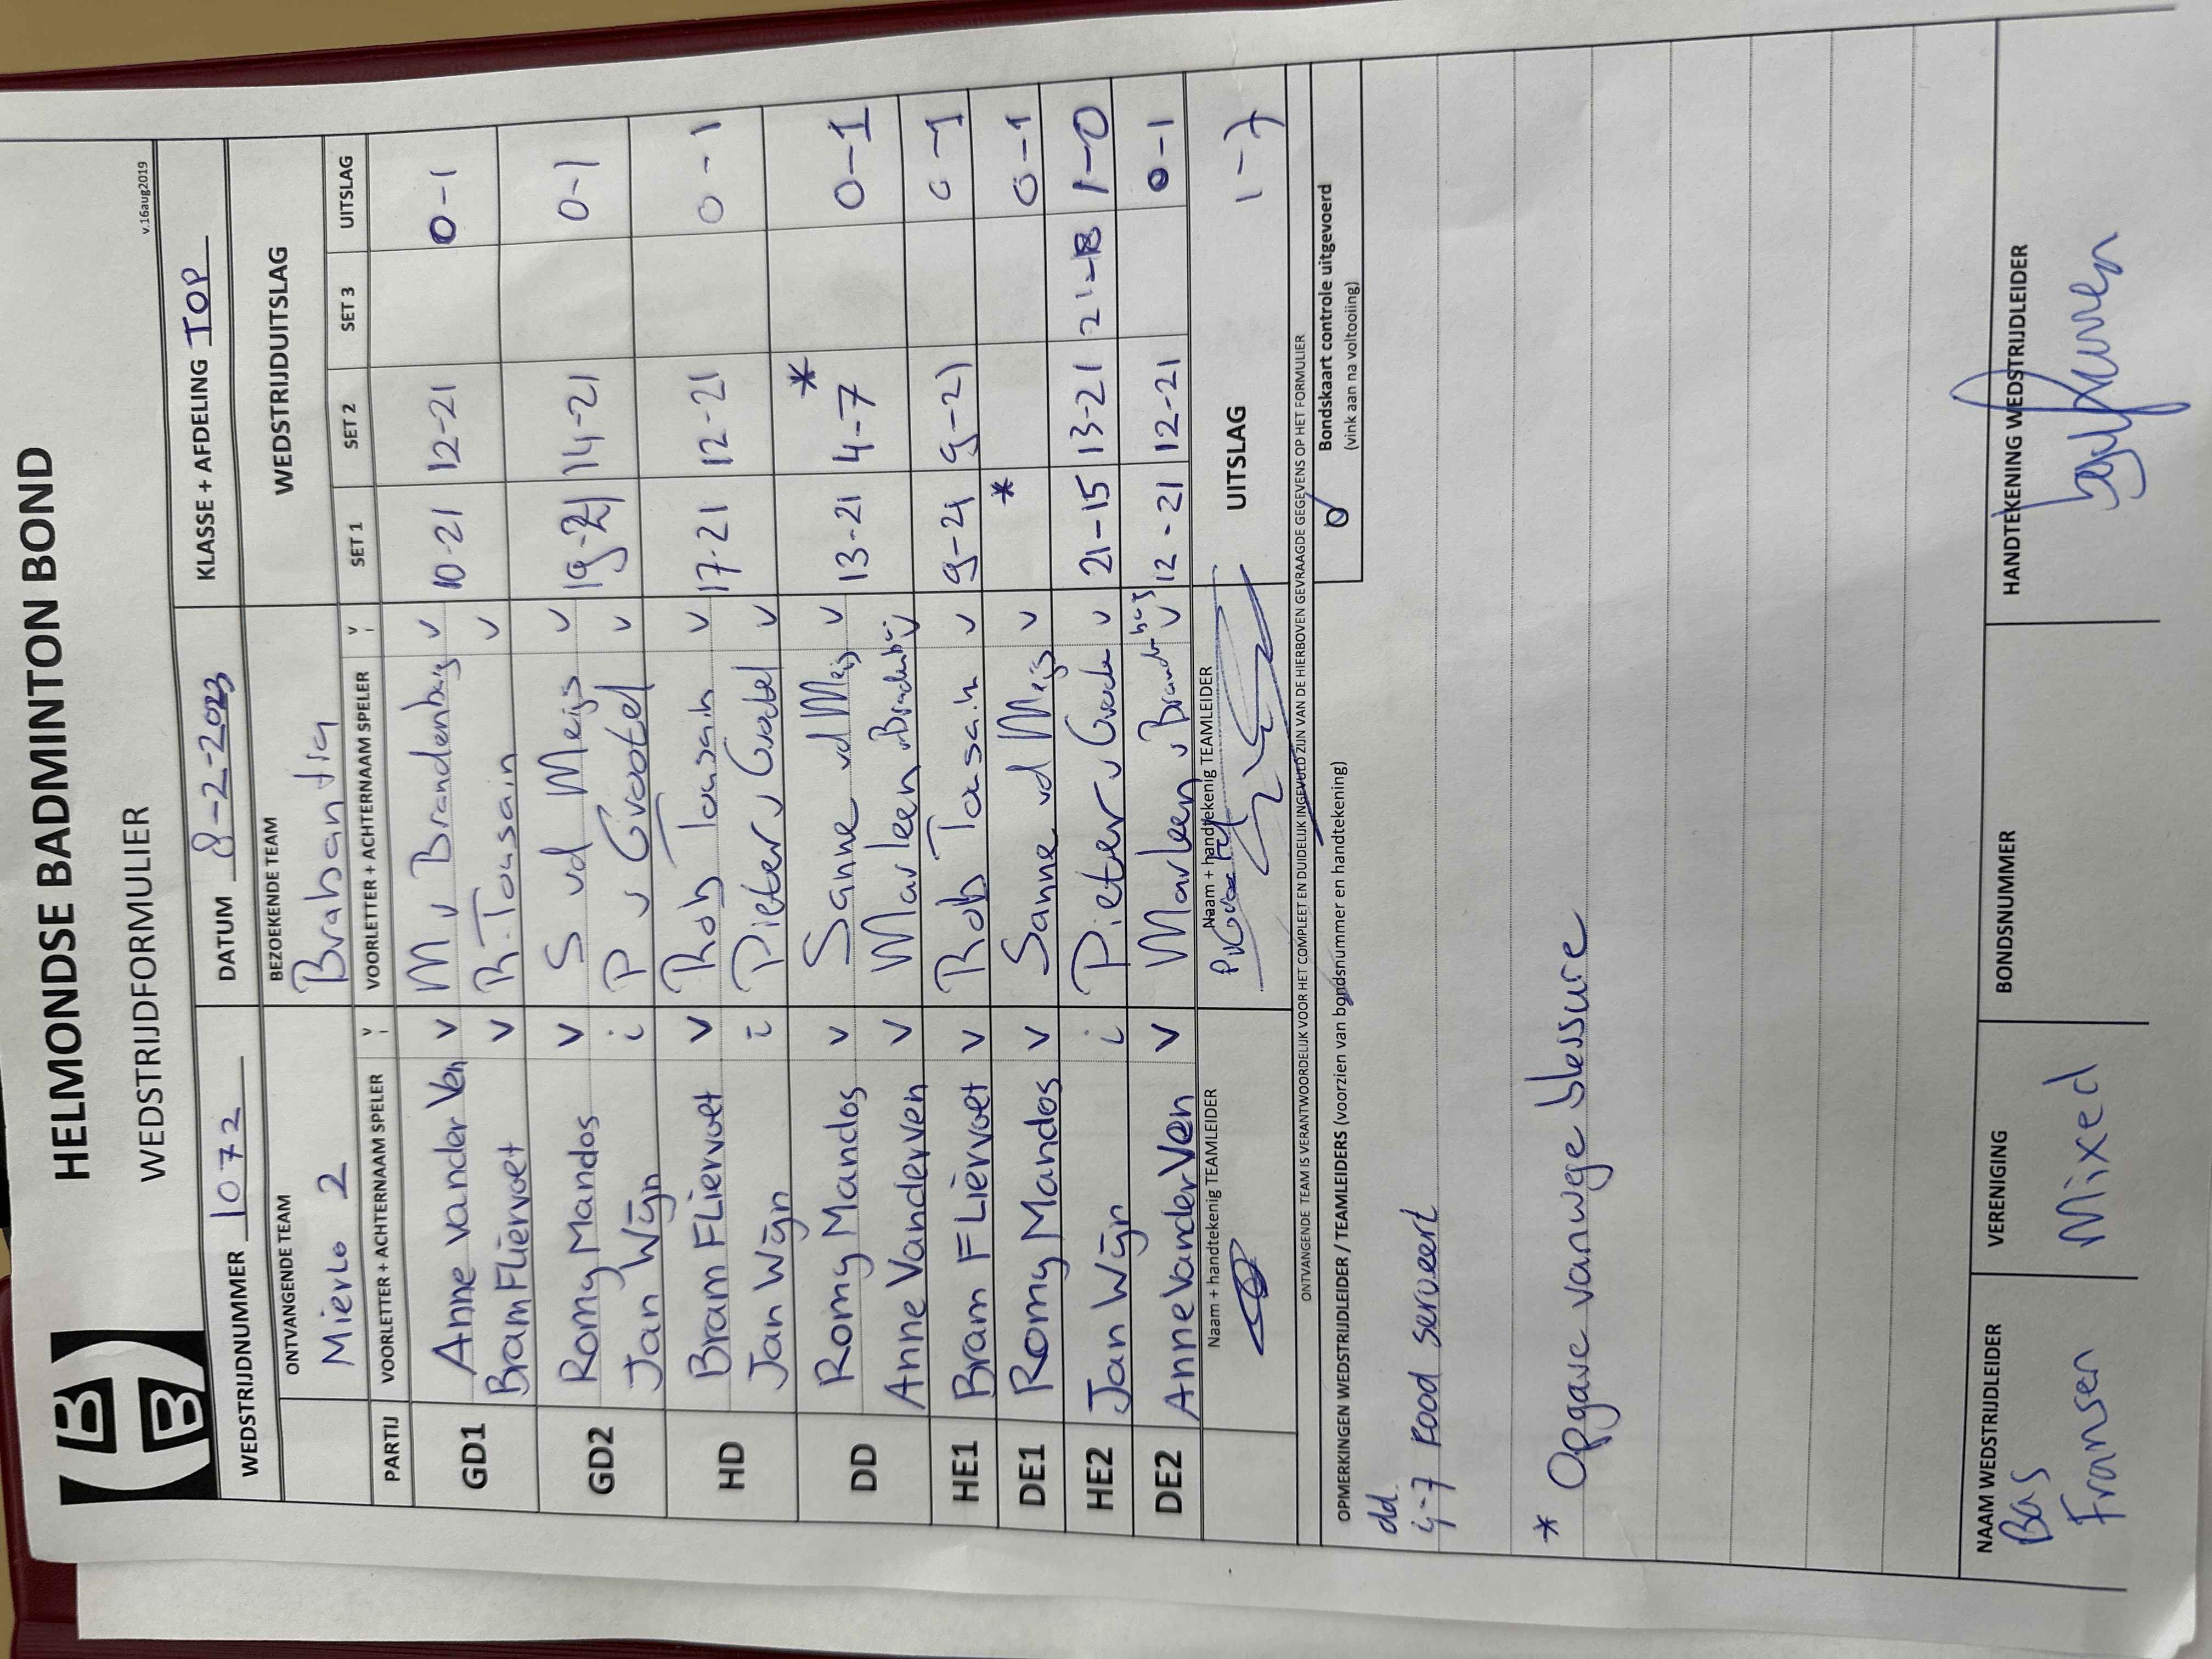 HELMONDSE BADMINTON BOND
WEDSTRIJDFORMULIER
v.16aug2019
WEDSTRIJDNUMMER 1072 DATUM 8-2-2023 KLASSE + AFDELING TOP
ONTVANGENDE TEAM BEZOEKENDE TEAM WEDSTRIJDUITSLAG
Mierlo 2 Brabantia
PARTIJ VOORLETTER + ACHTERNAAM SPELER V i VOORLETTER + ACHTERNAAM SPELER V i SET 1 SET 2 SET 3 UITSLAG
GD1 Anne van der Ven v M v Brandenburg v 10-21 12-21 0-1
Bram Fliervoet v R. Tousain v
GD2 Romy Mandos v S vd Meijs v 19-21 14-21 0-1
Jan Wijn i P v Grootel v
HD Bram Fliervoet v Rob Tousain v 17-21 12-21 0-1
Jan Wijn i Pieter v Grootel v
DD Romy Mandos v Sanne vd Meijs v 13-21 4-7 * 0-1
Anne Van der ven v Marleen v v
HE1 Bram Fliervoet v Rob Tousain v 9-21 9-21 0-1
DE1 Romy Mandos v Sanne vd Meijs v * 0-1
HE2 Jan Wijn i Pieter v v 21-15 13-21 21-18 1-0
DE2 Anne Van der Ven v Marleen v v 12-21 12-21 0-1
Naam + handtekenig TEAMLEIDER Naam + handtekenig TEAMLEIDER UITSLAG 1-7
ONTVANGENDE TEAM IS VERANTWOORDELIJK VOOR HET COMPLEET EN DUIDELIJK INGEVULD ZIJN VAN DE HIERBOVEN GEVRAAGDE GEGEVENS OP HET FORMULIER
OPMERKINGEN WEDSTRIJDLEIDER / TEAMLEIDERS (voorzien van bondsnummer en handtekening)
Bondskaart controle uitgevoerd
(vink aan na voltooiing)
dd.
4-7 rood serveert
* Opgave vanwege blessure
NAAM WEDSTRIJDLEIDER VERENIGING BONDSNUMMER HANDTEKENING WEDSTRIJDLEIDER
Bas
Fransen Mixed